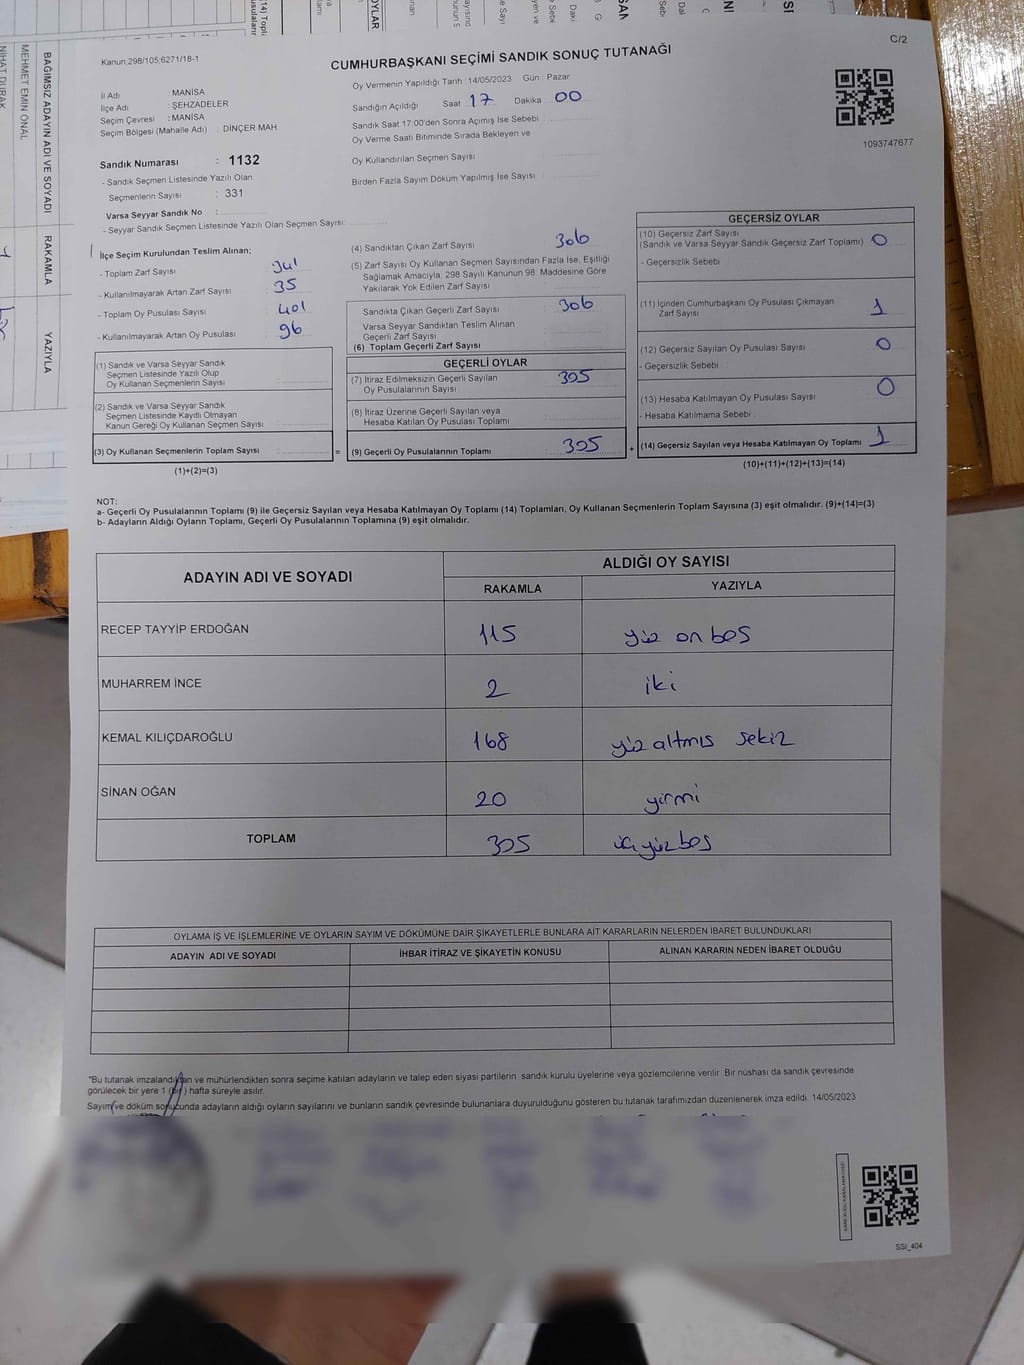 C/2
Kanun:298/105;6271/18-1
CUMHURBAŞKANI SEÇİMİ SANDIK SONUÇ TUTANAĞI
1093747677
İl Adı : MANİSA
İlçe Adı : ŞEHZADELER
Seçim Çevresi : MANİSA
Seçim Bölgesi (Mahalle Adı) : DİNÇER MAH.
Sandık Numarası : 1132
- Sandık Seçmen Listesinde Yazılı Olan
Seçmenlerin Sayısı : 331
Varsa Seyyar Sandık No :
- Seyyar Sandık Seçmen Listesinde Yazılı Olan Seçmen Sayısı:
Oy Vermenin Yapıldığı Tarih : 14/05/2023 Gün : Pazar
Sandığın Açıldığı Saat 17 Dakika 00
Sandık Saat 17:00'den Sonra Açımış İse Sebebi
Oy Verme Saati Bitiminde Sırada Bekleyen ve
Oy Kullandırılan Seçmen Sayısı
Birden Fazla Sayım Döküm Yapılmış İse Sayısı
İlçe Seçim Kurulundan Teslim Alınan;
- Toplam Zarf Sayısı
- Kullanılmayarak Artan Zarf Sayısı 35
- Toplam Oy Pusulası Sayısı 401
- Kullanılmayarak Artan Oy Pusulası 96
(1) Sandık ve Varsa Seyyar Sandık
Seçmen Listesinde Yazılı Olup
Oy Kullanan Seçmenlerin Sayısı :
(2) Sandık ve Varsa Seyyar Sandık
Seçmen Listesinde Kayıtlı Olmayan
Kanun Gereği Oy Kullanan Seçmen Sayısı :
(3) Oy Kullanan Seçmenlerin Toplam Sayısı :
(1)+(2)=(3)
(4) Sandıktan Çıkan Zarf Sayısı 306
(5) Zarf Sayısı Oy Kullanan Seçmen Sayısından Fazla İse, Eşitliği
Sağlamak Amacıyla; 298 Sayılı Kanunun 98. Maddesine Göre
Yakılarak Yok Edilen Zarf Sayısı
Sandıkta Çıkan Geçerli Zarf Sayısı 306
Varsa Seyyar Sandıktan Teslim Alınan
Geçerli Zarf Sayısı
(6) Toplam Geçerli Zarf Sayısı
GEÇERLİ OYLAR
(7) İtiraz Edilmeksizin Geçerli Sayılan 305
Oy Pusulalarının Sayısı
(8) İtiraz Üzerine Geçerli Sayılan veya
Hesaba Katılan Oy Pusulası Toplamı
= (9) Geçerli Oy Pusulalarının Toplamı 305 +
GEÇERSİZ OYLAR
(10) Geçersiz Zarf Sayısı
(Sandık ve Varsa Seyyar Sandık Geçersiz Zarf Toplamı) 0
- Geçersizlik Sebebi
(11) İçinden Cumhurbaşkanı Oy Pusulası Çıkmayan
Zarf Sayısı 1
(12) Geçersiz Sayılan Oy Pusulası Sayısı 0
- Geçersizlik Sebebi
(13) Hesaba Katılmayan Oy Pusulası Sayısı 0
- Hesaba Katılmama Sebebi
(14) Geçersiz Sayılan veya Hesaba Katılmayan Oy Toplamı 1
(10)+(11)+(12)+(13)=(14)
NOT:
a- Geçerli Oy Pusulalarının Toplamı (9) ile Geçersiz Sayılan veya Hesaba Katılmayan Oy Toplamı (14) Toplamları, Oy Kullanan Seçmenlerin Toplam Sayısına (3) eşit olmalıdır. (9)+(14)=(3)
b- Adayların Aldığı Oyların Toplamı, Geçerli Oy Pusulalarının Toplamına (9) eşit olmalıdır.
ADAYIN ADI VE SOYADI ALDIĞI OY SAYISI
RAKAMLA YAZIYLA
RECEP TAYYİP ERDOĞAN 115 yüz on beş
MUHARREM İNCE 2 iki
KEMAL KILIÇDAROĞLU 168 yüz altmış sekiz
SİNAN OĞAN 20 yirmi
TOPLAM 305 üç yüz beş
OYLAMA İŞ VE İŞLEMLERİNE VE OYLARIN SAYIM VE DÖKÜMÜNE DAİR ŞİKAYETLERLE BUNLARA AİT KARARLARIN NELERDEN İBARET BULUNDUKLARI
ADAYIN ADI VE SOYADI İHBAR İTİRAZ VE ŞİKAYETİN KONUSU ALINAN KARARIN NEDEN İBARET OLDUĞU
*Bu tutanak imzalandıktan ve mühürlendikten sonra seçime katılan adayların ve talep eden siyasi partilerin sandık kurulu üyelerine veya gözlemcilerine verilir. Bir nüshası da sandık çevresinde
görülecek bir yere 1 (bir) hafta süreyle asılır.
Sayım ve döküm sonucunda adayların aldığı oyların sayılarını ve bunların sandık çevresinde bulunanlara duyurulduğunu gösteren bu tutanak tarafımızdan düzenlenerek imza edildi. 14/05/2023
SSI_404
BAĞIMSIZ ADAYIN ADI VE SOYADI
RAKAMLA
YAZIYLA
MEHMET EMİN ÖNAL
NİHAT DURAK